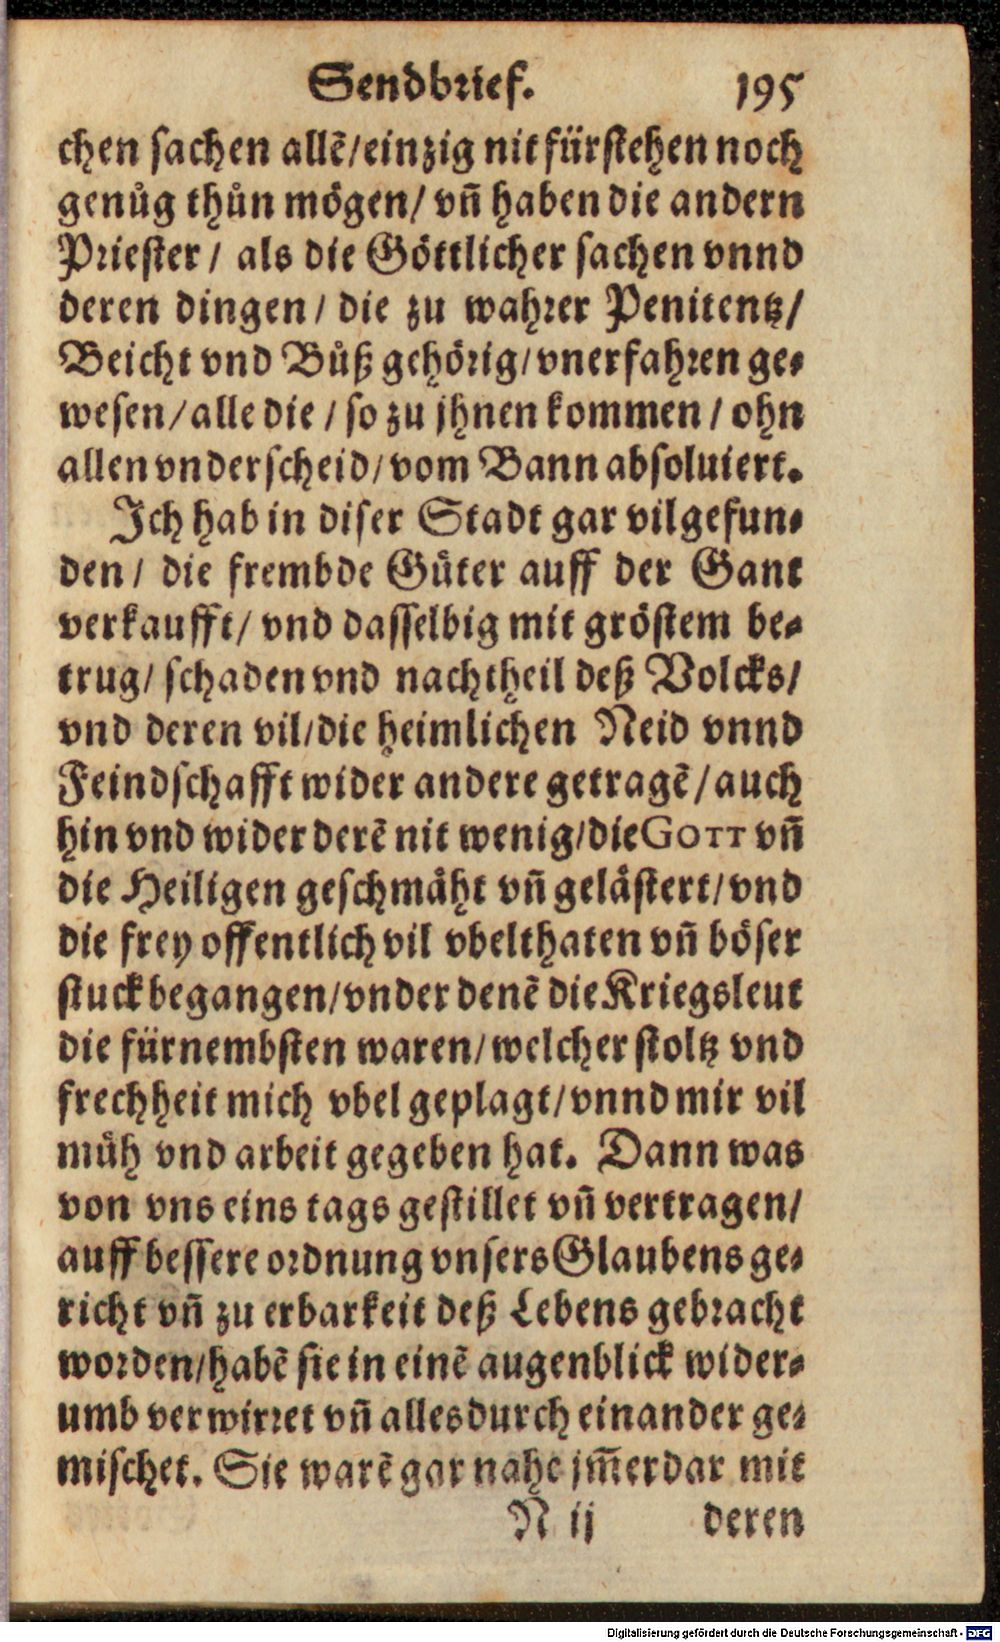 Sendbrief. 195
chen sachen allẽ/einzig nit fürstehen noch
genůg thůn mögen/ vñ haben die andern
Priester/ als die Göttlicher sachen vnnd
deren dingen/ die zu wahrer Penitentz/
Beicht vnd Bůß gehörig/vnerfahren ge-
wesen/alle die/ so zu jhnen kommen/ ohn
allen vnderscheid/vom Bann absoluiert.
Ich hab in diser Stadt gar vil gefun-
den/ die frembde Güter auff der Gant
verkaufft/ vnd dasselbig mit gröstem be-
trug/ schaden vnd nachtheil deß Volcks/
vnd deren vil/die heimlichen Neid vnnd
Feindschafft wider andere getragẽ/auch
hin vnd wider derẽ nit wenig/die GOTT vñ
die Heiligen geschmäht vñ gelästert/vnd
die frey offentlich vil vbelthaten vñ böser
stuck begangen/vnder denẽ die Kriegsleut
die fürnembsten waren/welcher stoltz vnd
frechheit mich vbel geplagt/vnnd mir vil
müh vnd arbeit gegeben hat. Dann was
von vns eins tags gestillet vñ vertragen/
auff bessere ordnung vnsers Glaubens ge-
richt vñ zu erbarkeit deß Lebens gebracht
worden/habẽ sie in einẽ augenblick wider-
umb verwirret vñ alles durch einander ge-
mischet. Sie warẽ gar nahe jm̃erdar mit
N ij deren
Digitalisierung gefördert durch die Deutsche Forschungsgemeinschaft - DFG